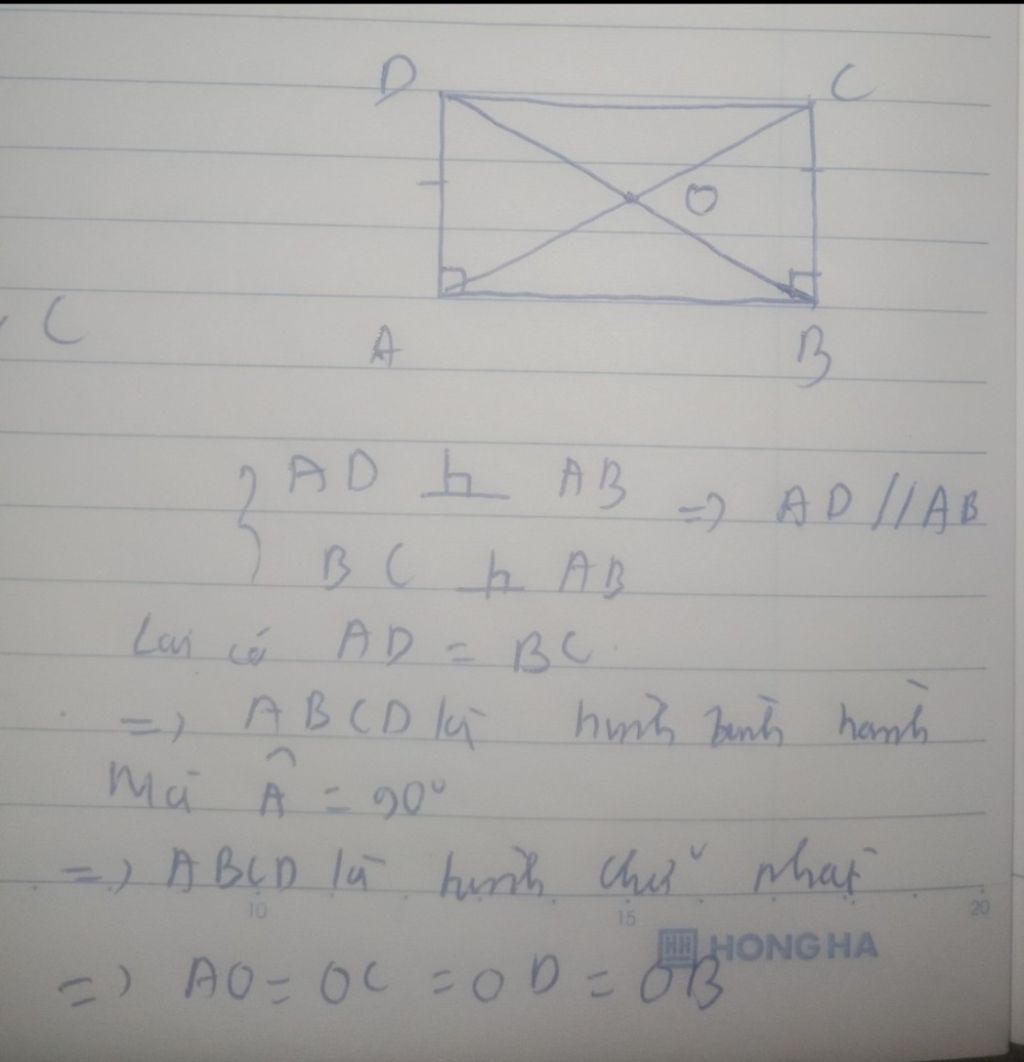 D C
O
C
A B
{ AD ⊥ AB => AD // AB
BC ⊥ AB
Lại có AD = BC
=> ABCD là hình bình hành
Mà Â = 90°
=> ABCD là hình chữ nhật
10 15 20
HH HONG HA
=> AO = OC = OD = OB